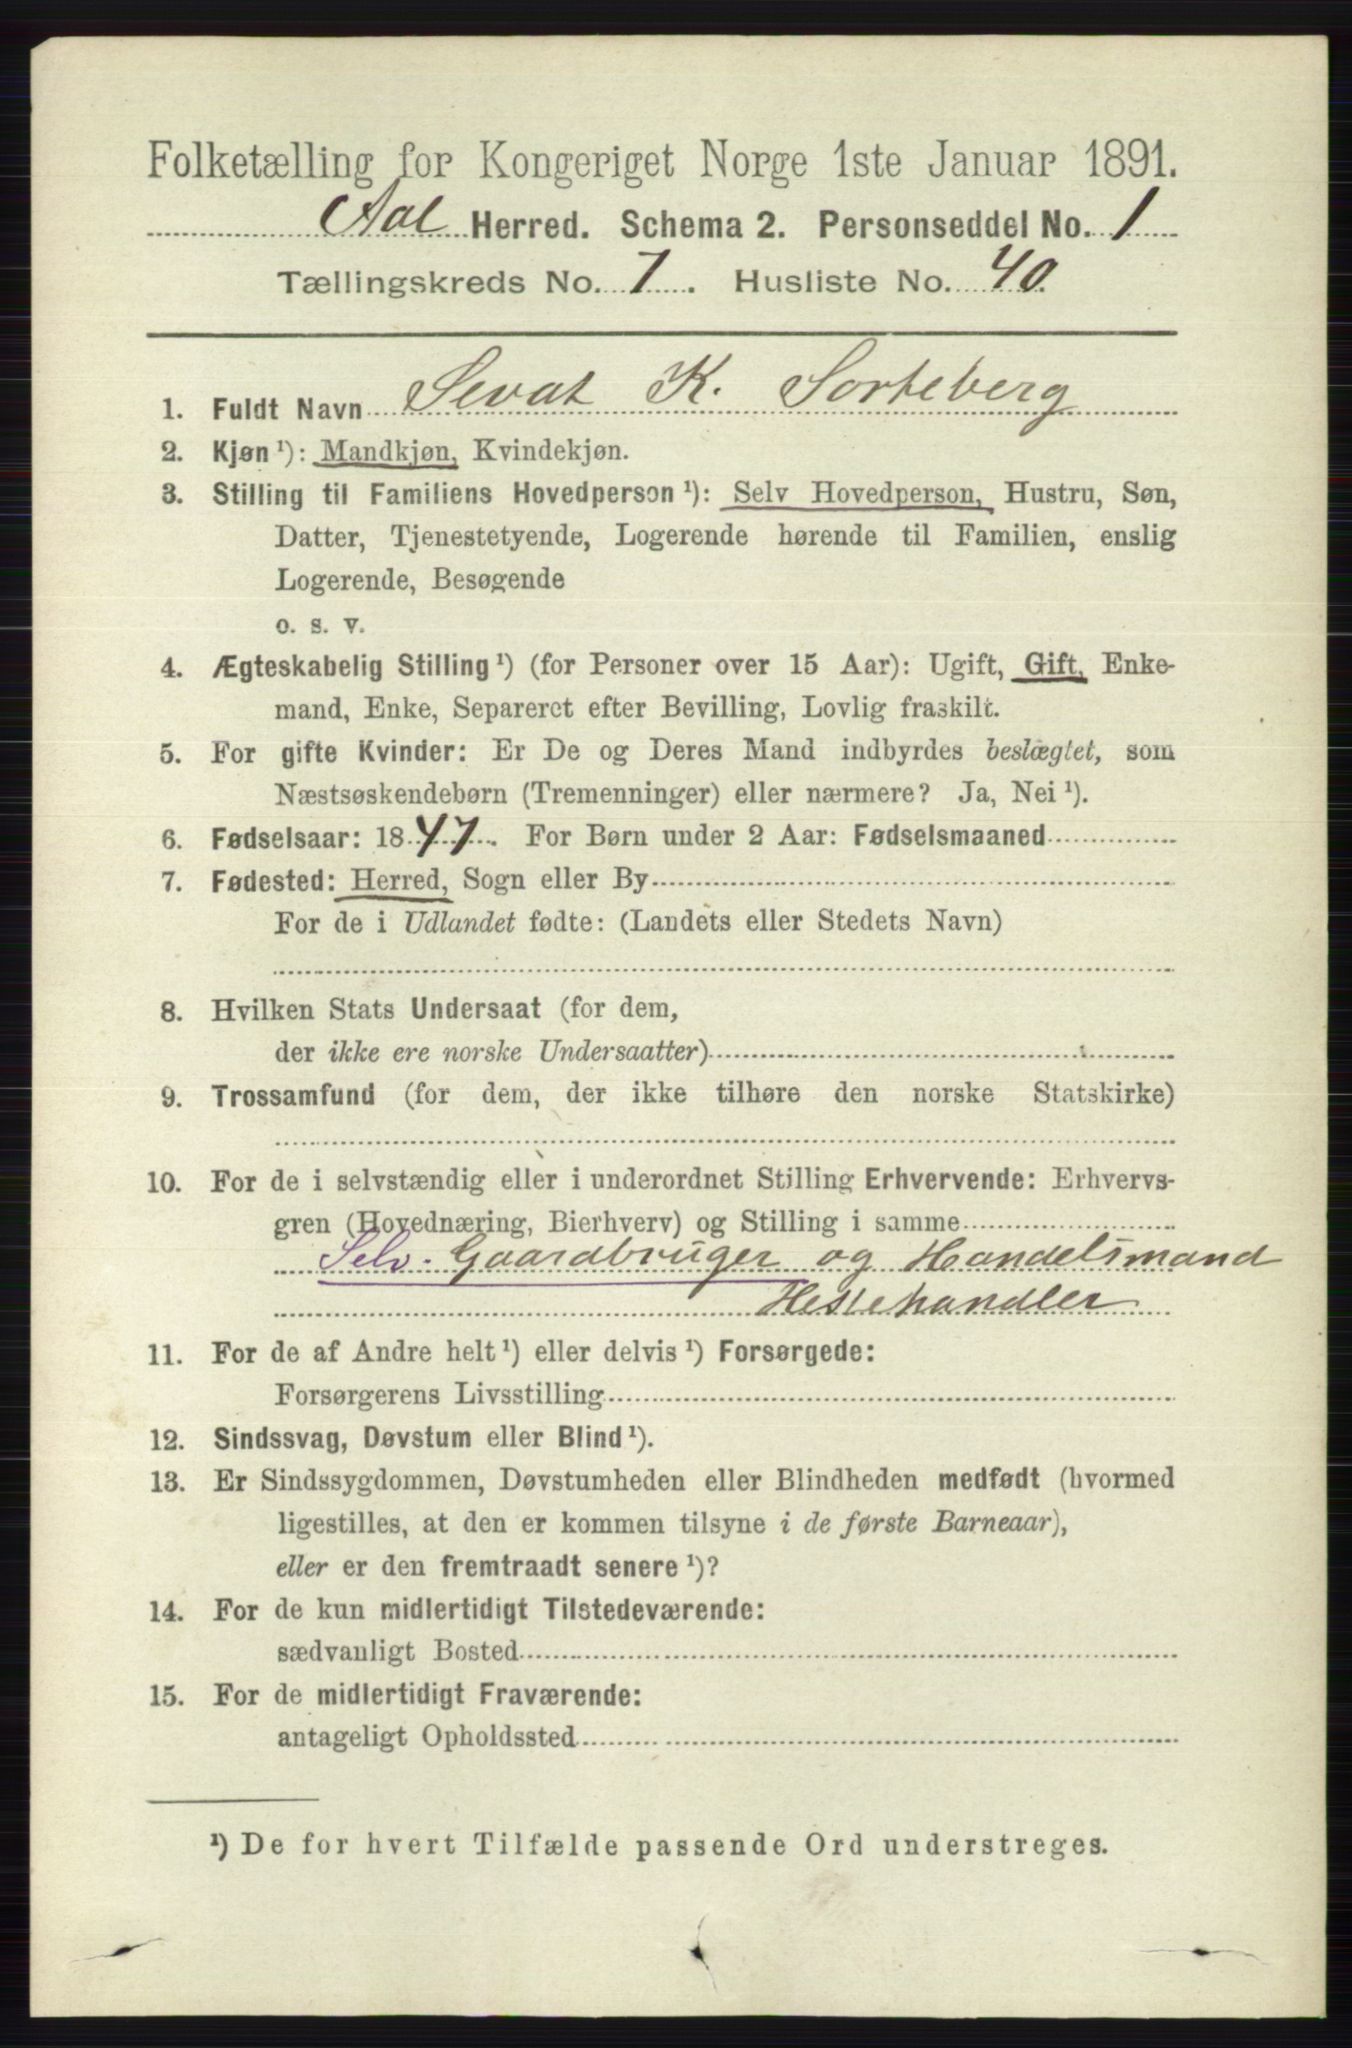 Folketælling for Kongeriget Norge 1ste Januar 1891.
Aal Herred. Schema 2. Personseddel No. 1
Tællingskreds No. 7. Husliste No. 40.
1. Fuldt Navn Sevat K. Sorteberg
2. Kjøn ¹): Mandkjøn, Kvindekjøn.
3. Stilling til Familiens Hovedperson ¹): Selv Hovedperson, Hustru, Søn,
Datter, Tjenestetyende, Logerende hørende til Familien, enslig
Logerende, Besøgende
o. s. v.
4. Ægteskabelig Stilling ¹) (for Personer over 15 Aar): Ugift, Gift, Enke-
mand, Enke, Separeret efter Bevilling, Lovlig fraskilt.
5. For gifte Kvinder: Er De og Deres Mand indbyrdes beslægtet, som
Næstsøskendebørn (Tremenninger) eller nærmere? Ja, Nei ¹).
6. Fødselsaar: 1847. For Børn under 2 Aar: Fødselsmaaned
7. Fødested: Herred, Sogn eller By
For de i Udlandet fødte: (Landets eller Stedets Navn)
8. Hvilken Stats Undersaat (for dem,
der ikke ere norske Undersaatter)
9. Trossamfund (for dem, der ikke tilhøre den norske Statskirke)
10. For de i selvstændig eller i underordnet Stilling Erhvervende: Erhvervs-
gren (Hovednæring, Bierhverv) og Stilling i samme
Selv. Gaardbruger og Handelsmand
Hestehandler
11. For de af Andre helt ¹) eller delvis ¹) Forsørgede:
Forsørgerens Livsstilling
12. Sindssvag, Døvstum eller Blind ¹).
13. Er Sindssygdommen, Døvstumheden eller Blindheden medfødt (hvormed
ligestilles, at den er kommen tilsyne i de første Barneaar),
eller er den fremtraadt senere ¹)?
14. For de kun midlertidigt Tilstedeværende:
sædvanligt Bosted
15. For de midlertidigt Fraværende:
antageligt Opholdssted
¹) De for hvert Tilfælde passende Ord understreges.